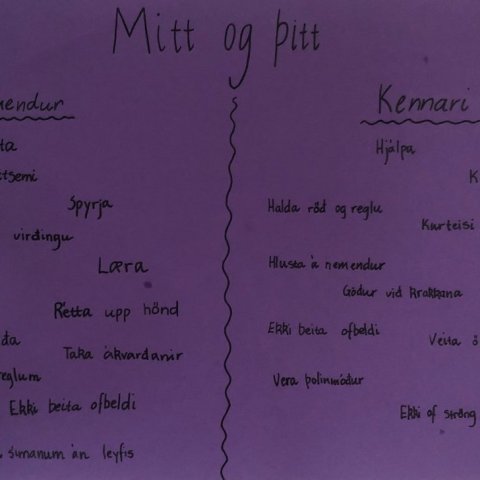 Mitt og þitt
mendur
ta
tsemi
Spyrja
virðingu
Læra
Rétta upp hönd
ða
Taka ákvarðanir
reglum
Ekki beita ofbeldi
símanum án leyfis
Kennari
Hjálpa
K
Halda röð og reglu
Kurteisi
Hlusta á nemendur
Góður við krakkana
Ekki beita ofbeldi
Veita ö
Vera þolinmóður
Ekki of ströng